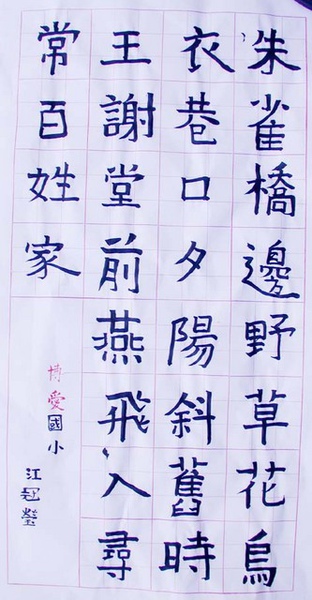 朱雀橋邊野草花烏
衣巷口夕陽斜舊時
王謝堂前燕飛入尋
常百姓家
博愛國小
江冠瑩